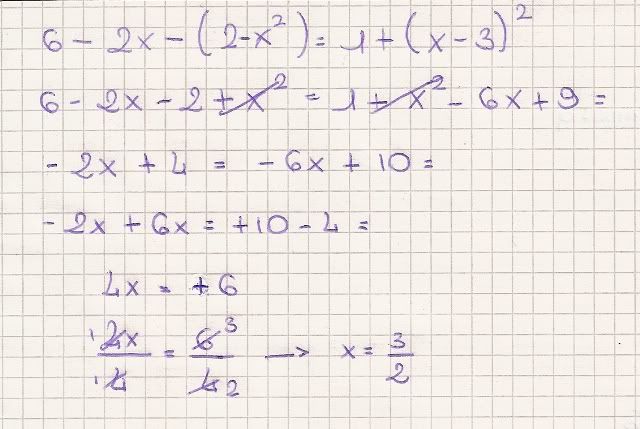 6 - 2x - (2-x²) = 1 + (x-3)²
6 - 2x - 2 + x² = 1 + x² - 6x + 9 =
- 2x + 4 = - 6x + 10 =
- 2x + 6x = +10 - 4 =
4x = +6
¹4x/¹4 = 6³/4₂ → x = 3/2